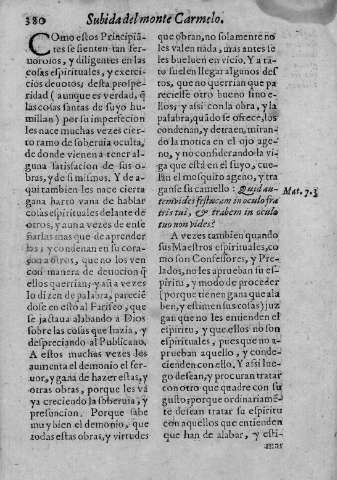 380
Subida del monte Carmelo.
COmo estos Principiã-
tes se sienten tan fer-
uorosos, y diligentes en las
cosas espirituales, y exerci-
cios deuotos; desta prospe-
ridad (aunque es verdad, q̃
las cosas santas de suyo hu-
millan) por su imperfecion
les nace muchas vezes cier-
to ramo de soberuia oculta,
de donde vienen a tener al-
guna satisfacion de sus o-
bras, y de si mismos. Y de a-
qui tambien les nace cierta
gana harto vana de hablar
cosas espirituales delante de
otros, y a una vezes de ense
ñarlas mas que de aprender
los; y condenan en su cora-
çon a otros, que no los ven
con manera de deuocion q̃
ellos querrian; y aũ a vezes
lo dizen de palabra, pareciẽ
dose en esto al Fariseo, que
se jactaua alabando a Dios
sobre las cosas que hazia, y
despreciando al Publicano.
A estos muchas vezes les
aumenta el demonio el fer-
uor, y gana de hazer estas, y
otras obras, porque les vá
ya creciendo la soberuia, y
presuncion. Porque sabe
muy bien el demonio, que
todas estas obras, y virtudes
que obran, no solamente no
les valen nada, mas antes se
les bueluen en vicio. Y a tã-
to suelen llegar algunos des
tos, que no querrian que pa
recieffe otro bueno sino e-
llos; y assi con la obra, y la
palabra, quãdo se ofrece, los
condenan, y detraen, miran-
do la motica en el ojo age-
no, y no considerando la vi-
ga que está en el suyo, cue-
lan el mosquito ageno, y tra
ganse su camello: Quid au-
tem vides festucam in oculo fra
tris tui, & trabem in oculo
tuo non vides?
Mat. 7. 3
A vezes tambien quando
sus Maestros espirituales, co
mo son Confessores, y Pre-
lados, no les aprueban su es-
piritu, y modo de proceder
(porque tienen gana que ala
ben, y estimen sus cosas) juz
gan que no les entienden el
espiritu, y que ellos no son
espirituales, pues que no a-
prueban aquello, y conde-
cienden con ello. Y assi lue-
go desean, y procuran tratar
con otro que quadre con su
gusto; porque ordinariamẽ-
te desean tratar su espiritu
con aquellos que entienden
que han de alabar, y esti-
mar